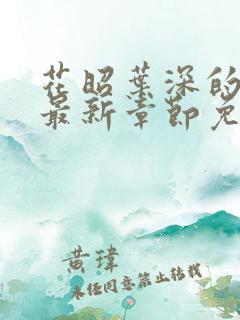 花昭葉深的
最新章節免
黄瑋
未经同意禁止转载